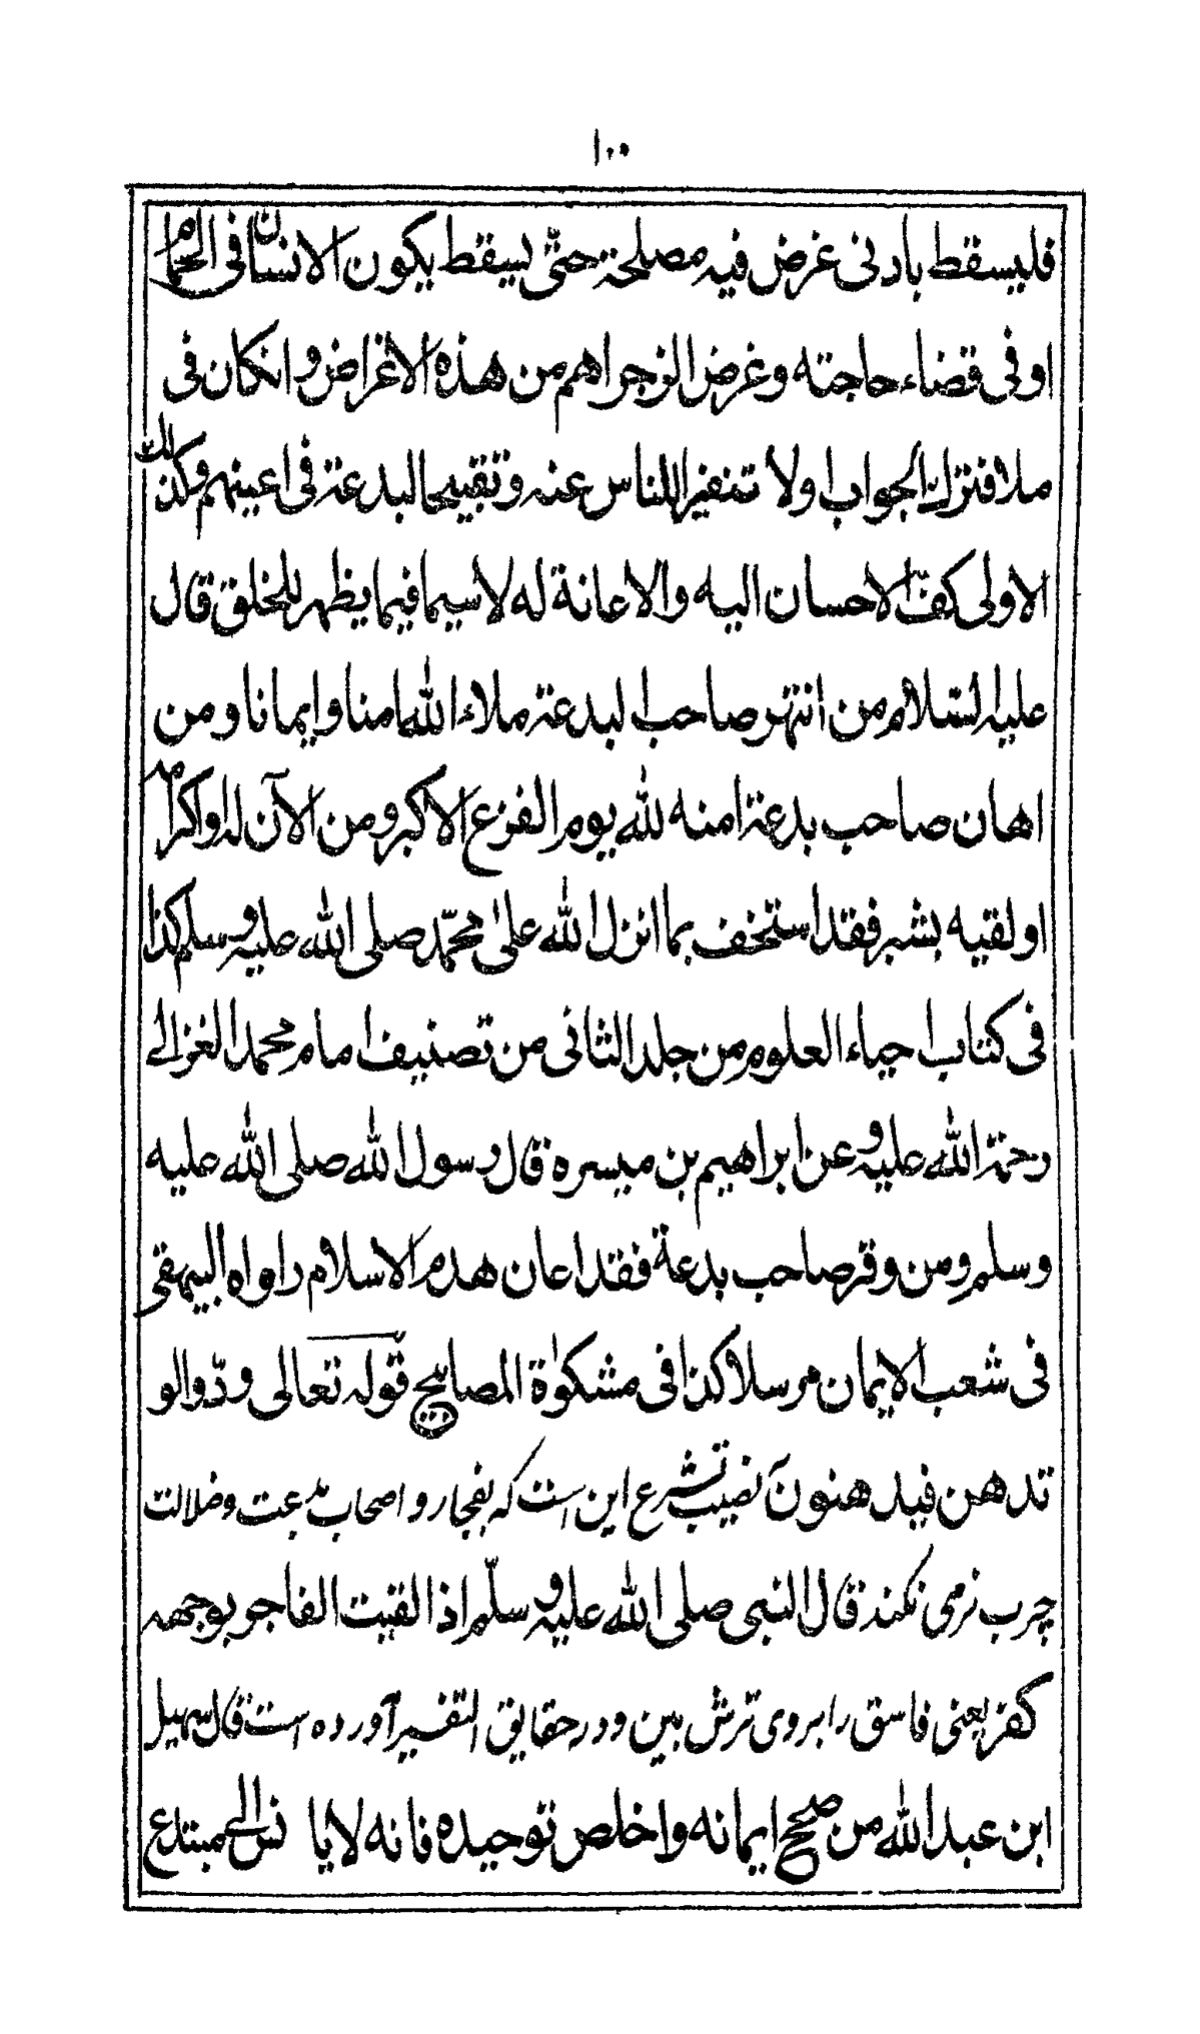 ١٠٥
فليسقط بادنى غرض فيه مصلحة حتّى يسقط يكون الانسان فى الحمام
او فى قضاء حاجته وغرض الزجر اهم من هذه الاغراض وانكان فى
ملا فترك الجواب اولا تنفيرا للناس عنه وتقبيحا لبدعة فى اعينهم وكذلك
الاولى كفّ الاحسان اليه والاعانة له لاسيما فيما يظهر للخلق قال
عليه السّلام من انتهر صاحب البدعة ملاء الله امنا وايمانا ومن
اهان صاحب بدعة امنه لله يوم الفزع الاكبر ومن الآن له واكرمه
او لقيه بشبر فقد استخف بما انزل الله على محمّد صلى الله عليه وسلم كذا
فى كتاب احياء العلوم من جلد الثانى من تصنيف امام محمد الغزالے
رحمة الله عليه وعن ابراهيم بن ميسره قال رسول الله صلى الله عليه
وسلم ومن وقر صاحب بدعة فقد اعان هدم الاسلام راواه البيهقى
فى شعب الايمان مرسلا كذا فى مشكوٰة المصابيح قوله تعالى ودّوالو
تدهن فيدهنون نصيب تشرع اين است كه بفجار و اصحاب بدعت وضلالت
چرب نرمى نكنند قال النبى صلى الله عليه وسلّم اذا لقيت الفاجر بوجهه
كفر يعنى فاسق را بروى ترش بين ودر حقايق التفسير آورده است قال سهيل
ابن عبد الله من صحح ايمانه واخلص توحيده فانه لايا نس الى مبتدع